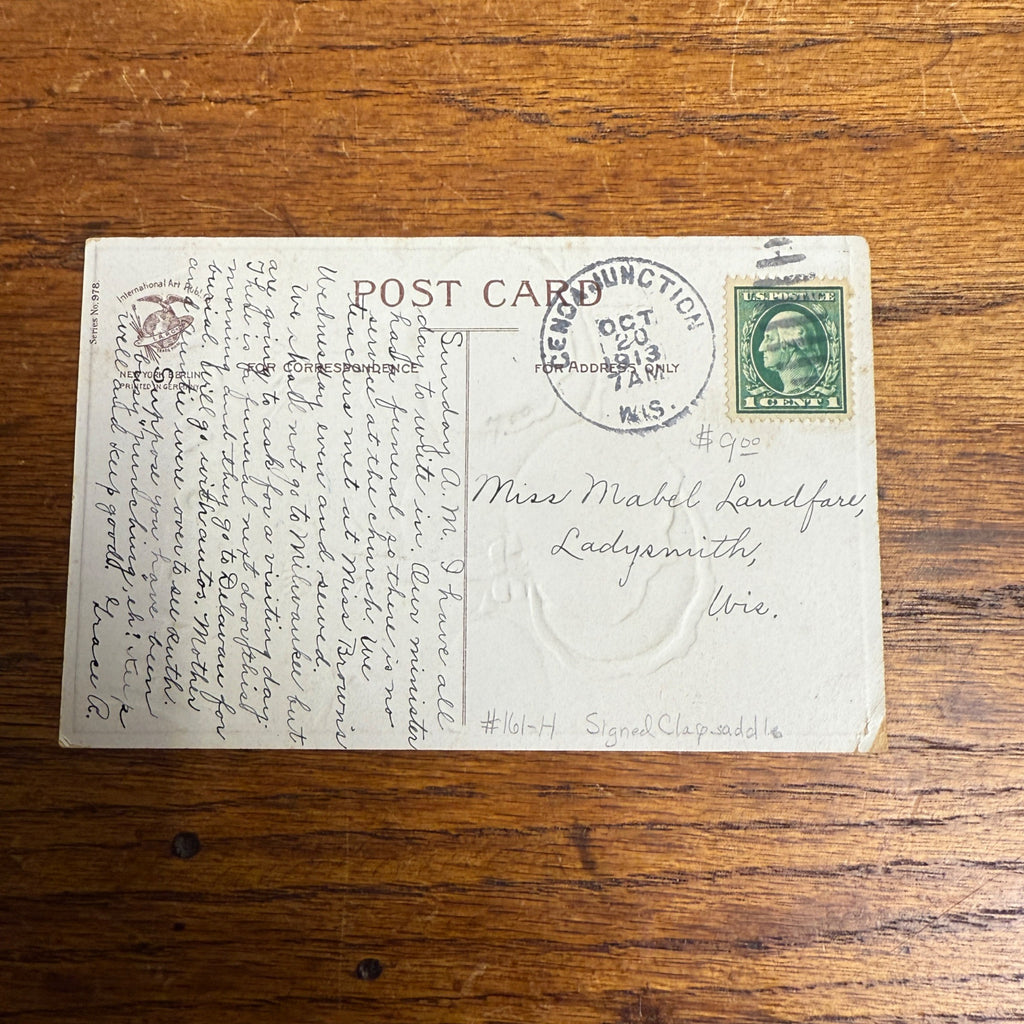 POST CARD
Series No. 978.
International Art Publ.
NEW YORK BERLIN
PRINTED IN GERMANY
FOR CORRESPONDENCE
FOR ADDRESS ONLY
JUNCTION
OCT
20
1913
7 AM
WIS.
U.S. POSTAGE
1 CENT 1
$9.00
Miss Mabel Landfare,
Ladysmith,
Wis.
#161-H Signed Clapsaddle
Sunday A.M. I have all
day to write in. Our minister
had a funeral so there is no
service at the church. We
teachers met at Miss Brown's
Wednesday even and sewed.
We shall not go to Milwaukee but
are going to ask for a visiting day.
There is a funeral next door this
morning and they go to Delavan for
burial. Will go with autos. Mother
and were over to see Ruth.
Suppose you have been
busy punching, eh? Keep
well and keep good, Grace R.